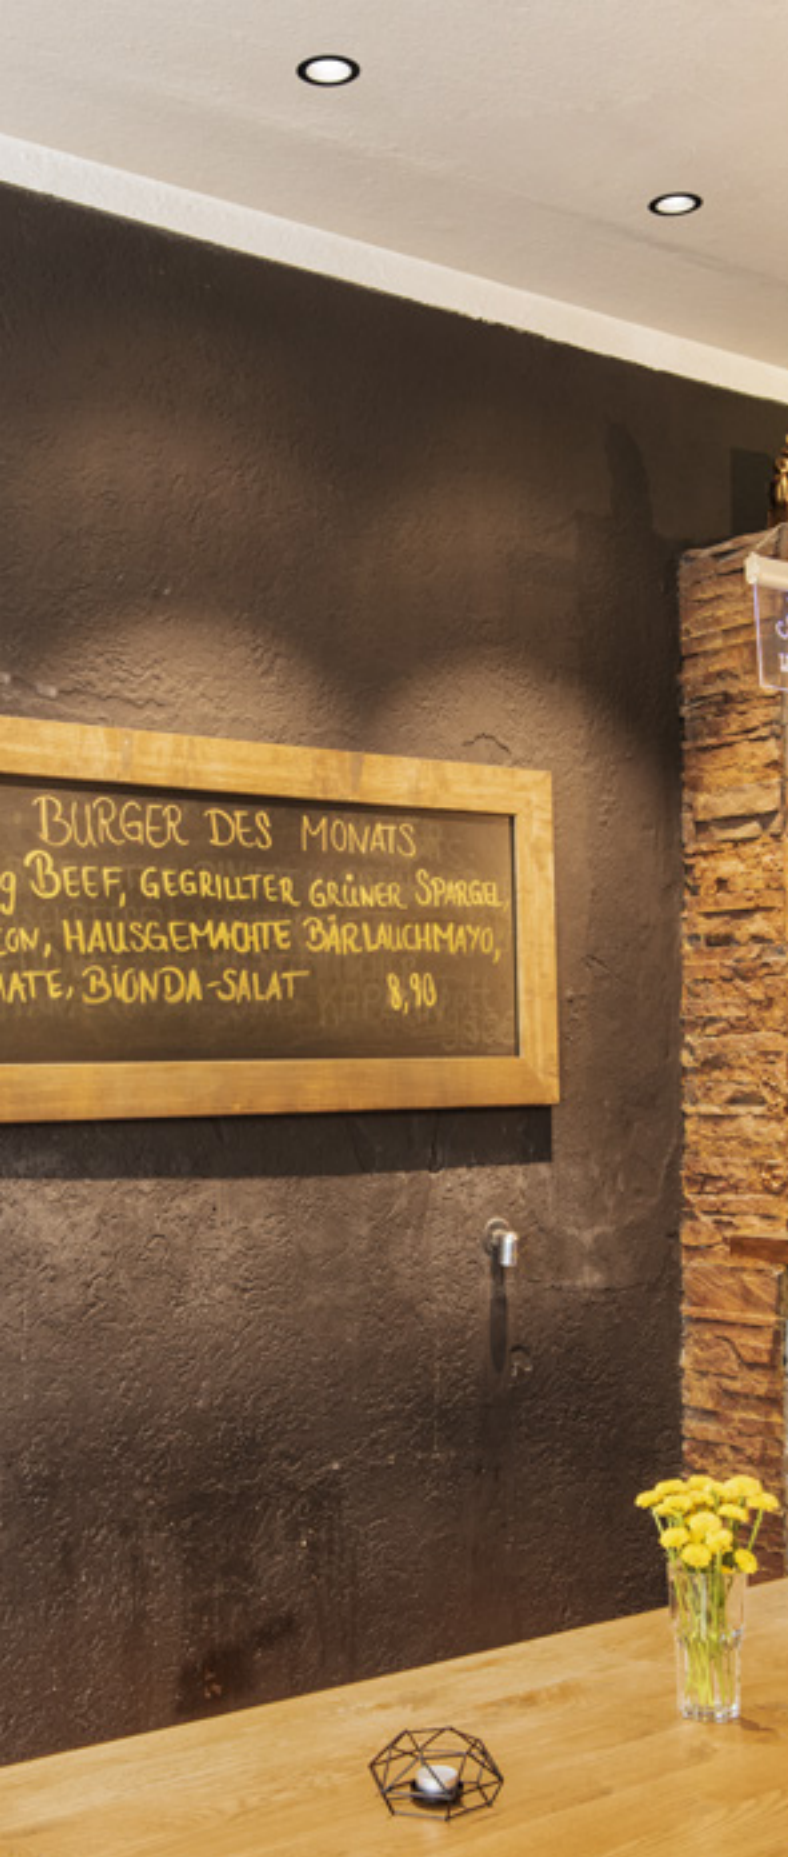 BURGER DES MONATS
g BEEF, GEGRILLTER GRÜNER SPARGEL,
CON, HAUSGEMACHTE BÄRLAUCHMAYO,
MATE, BIONDA-SALAT 8,90